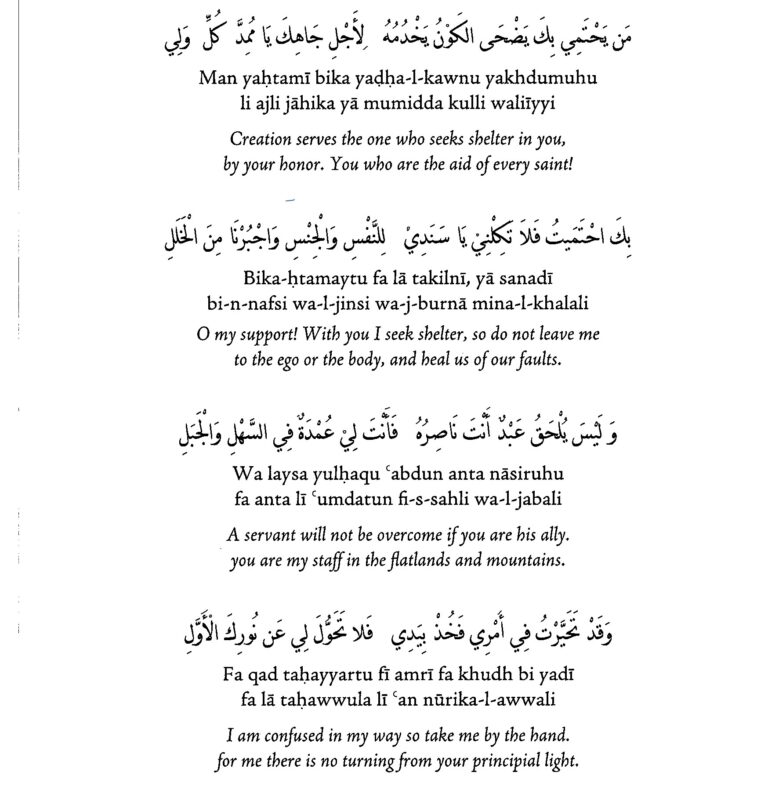 مَن يَحْتَمِي بِكَ يَضْحَى الكَوْنُ يَخْدُمُهُ لِأَجْلِ جَاهِكَ يَا مُمِدَّ كُلِّ وَلِي
Man yaḥtamī bika yaḍha-l-kawnu yakhdumuhu
li ajli jāhika yā mumidda kulli waliīyyi
Creation serves the one who seeks shelter in you,
by your honor. You who are the aid of every saint!
بِكَ احْتَمَيتُ فَلَا تَكِلْنِيْ يَا سَنَدِيْ لِلنَّفْسِ وَالْجِنْسِ وَاجْبُرْنَا مِنَ الْخَلَلِ
Bika-ḥtamaytu fa lā takilnī, yā sanadī
bi-n-nafsi wa-l-jinsi wa-j-burnā mina-l-khalali
O my support! With you I seek shelter, so do not leave me
to the ego or the body, and heal us of our faults.
وَ لَيْسَ يُلْحَقُ عَبْدٌ أَنْتَ نَاصِرُهُ فَأَنْتَ لِيْ عُمْدَةٌ فِي السَّهْلِ وَالْجَبَلِ
Wa laysa yulḥaqu ʿabdun anta nāsiruhu
fa anta lī ʿumdatun fi-s-sahli wa-l-jabali
A servant will not be overcome if you are his ally.
you are my staff in the flatlands and mountains.
وَقَدْ تَحَيَّرْتُ فِي أَمْرِي فَخُذْ بِيَدِي فَلا تَحَوُّلَ لِي عَن نُورِكَ الْأَوَّلِ
Fa qad taḥayyartu fī amrī fa khudh bi yadī
fa lā taḥawwula lī ʿan nūrika-l-awwali
I am confused in my way so take me by the hand.
for me there is no turning from your principial light.